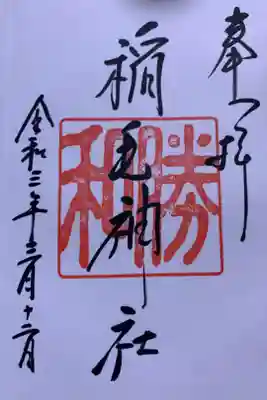 奉拝
稲毛神社
勝和
令和三年三月十二日